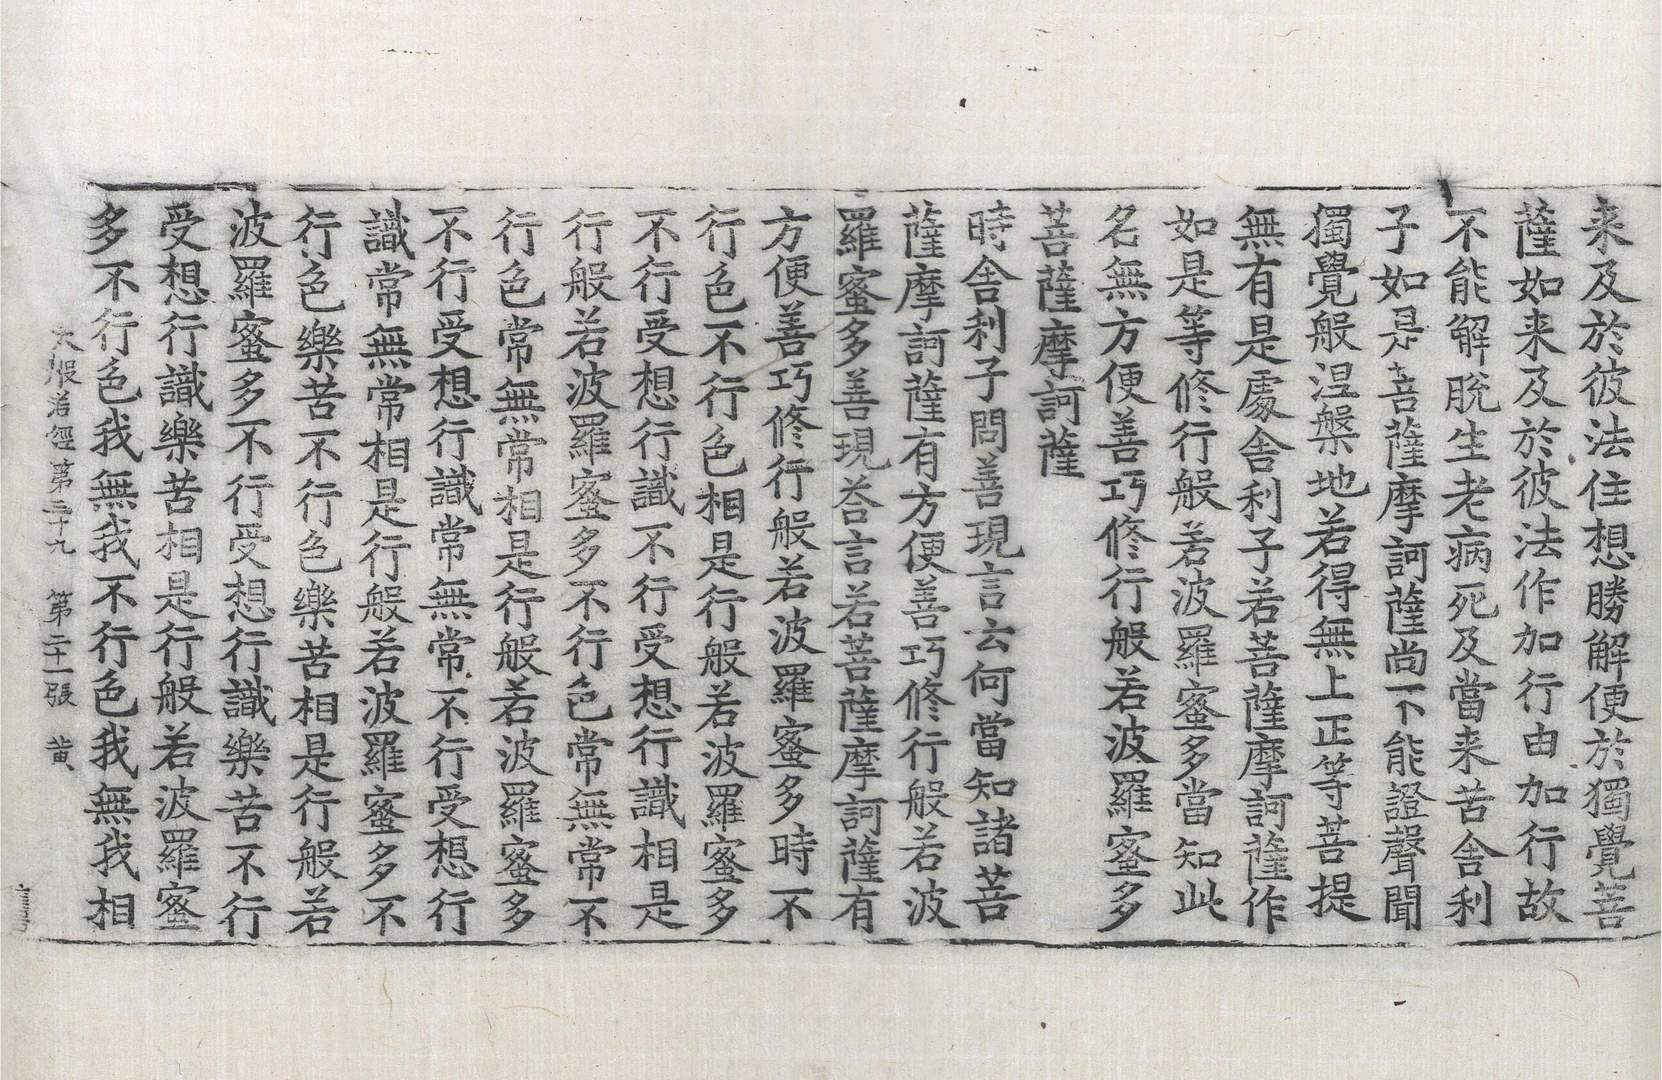 来及於彼法住想勝解便於獨覺菩
薩如来及於彼法作加行由加行故
不能解脫生老病死及當来苦舍利
子如是菩薩摩訶薩尚不能證聲聞
獨覺般涅槃地若得無上正等菩提
無有是處舍利子若菩薩摩訶薩作
如是等修行般若波羅蜜多當知此
名無方便善巧修行般若波羅蜜多
菩薩摩訶薩
時舍利子問善現言云何當知諸菩
薩摩訶薩有方便善巧修行般若波
羅蜜多善現荅言若菩薩摩訶薩有
方便善巧修行般若波羅蜜多時不
行色不行色相是行般若波羅蜜多
不行受想行識不行受想行識相是
行般若波羅蜜多不行色常無常不
行色常無常相是行般若波羅蜜多
不行受想行識常無常不行受想行
識常無常相是行般若波羅蜜多不
行色樂苦不行色樂苦相是行般若
波羅蜜多不行受想行識樂苦不行
受想行識樂苦相是行般若波羅蜜
多不行色我無我不行色我無我相
大般若經第三十九 第二十一張 黃